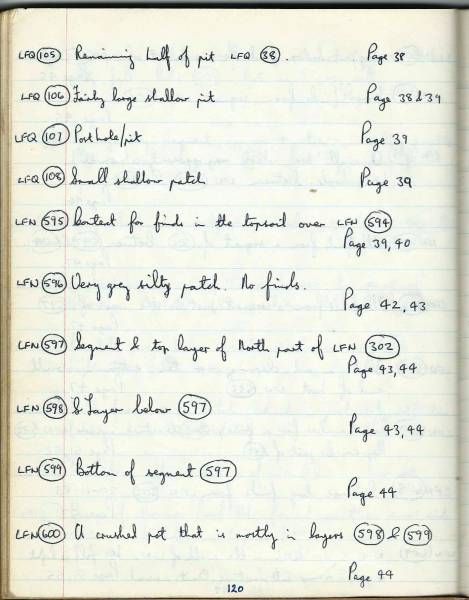 LFQ 105 Remaining half of pit LFQ 38. Page 38
LFQ 106 Fairly large shallow pit Page 38 & 39
LFQ 107 Post hole/pit Page 39
LFQ 108 Small shallow patch Page 39
LFN 595 Context for finds in the topsoil over LFN 594
Page 39, 40
LFN 596 Very grey silty patch. No finds.
Page 42, 43
LFN 597 Segment & top layer of North part of LFN 302
Page 43, 44
LFN 598 & Layer below 597
Page 43, 44
LFN 599 Bottom of segment 597
Page 44
LFN 600 A crushed pot that is mostly in layers 598 & 599
Page 44
120